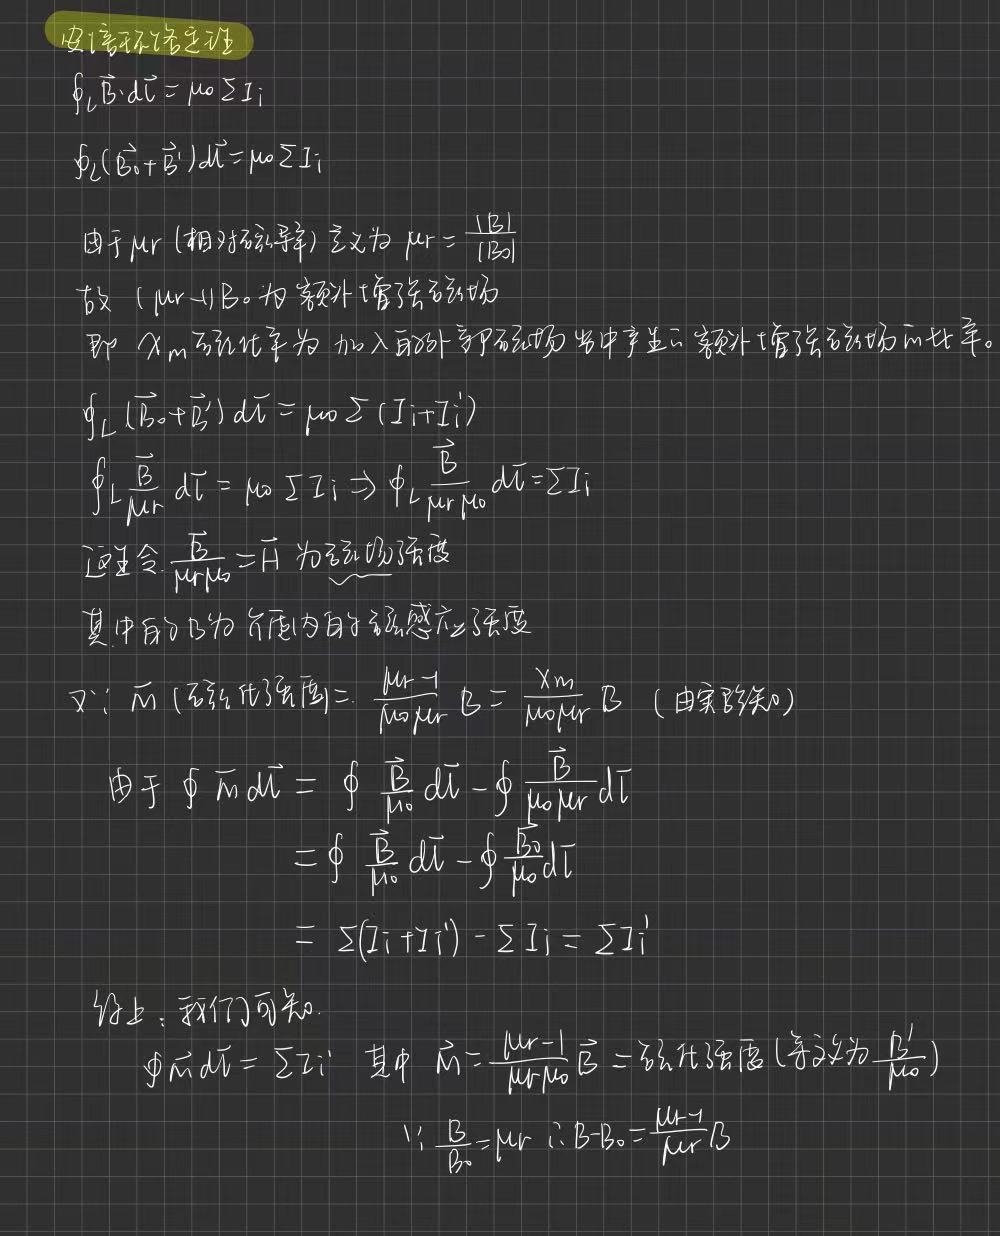 安培环路定理
∮_L B⃗·dl⃗ = μ₀ΣIᵢ
∮_L(B⃗₀+B⃗')dl⃗ = μ₀ΣIᵢ
由于μr (相对磁导率) 定义为 μr = |B|/|B₀|
故 (μr-1)B₀ 为额外增强磁场
即 χm 磁化率为 加入的外部磁场当中产生 额外增强磁场的比率。
∮_L (B⃗₀+B⃗') dl⃗ = μ₀Σ(Iᵢ+Iᵢ')
∮_L B⃗/μr dl⃗ = μ₀ΣIᵢ ⇒ ∮_L B⃗/(μrμ₀) dl⃗ = ΣIᵢ
这里令 B⃗/(μrμ₀) = H⃗ 为磁场强度
其中的B为 介质内的磁感应强度
又∵ M⃗ (磁化强度) = (μr-1)/(μ₀μr) B = χm/(μ₀μr) B (由实验知)
由于 ∮ M⃗ dl⃗ = ∮ B⃗/μ₀ dl⃗ - ∮ B⃗/(μ₀μr) dl⃗
= ∮ B⃗/μ₀ dl⃗ - ∮ B⃗₀/μ₀ dl⃗
= Σ(Iᵢ+Iᵢ') - ΣIᵢ = ΣIᵢ'
综上：我们可知.
∮M⃗dl⃗ = ΣIᵢ' 其中 M⃗ = (μr-1)/(μrμ₀) B⃗ = 磁化强度(等义为 B'/μ₀)
∵ B/B₀ = μr ∴ B-B₀ = (μr-1)/μr B